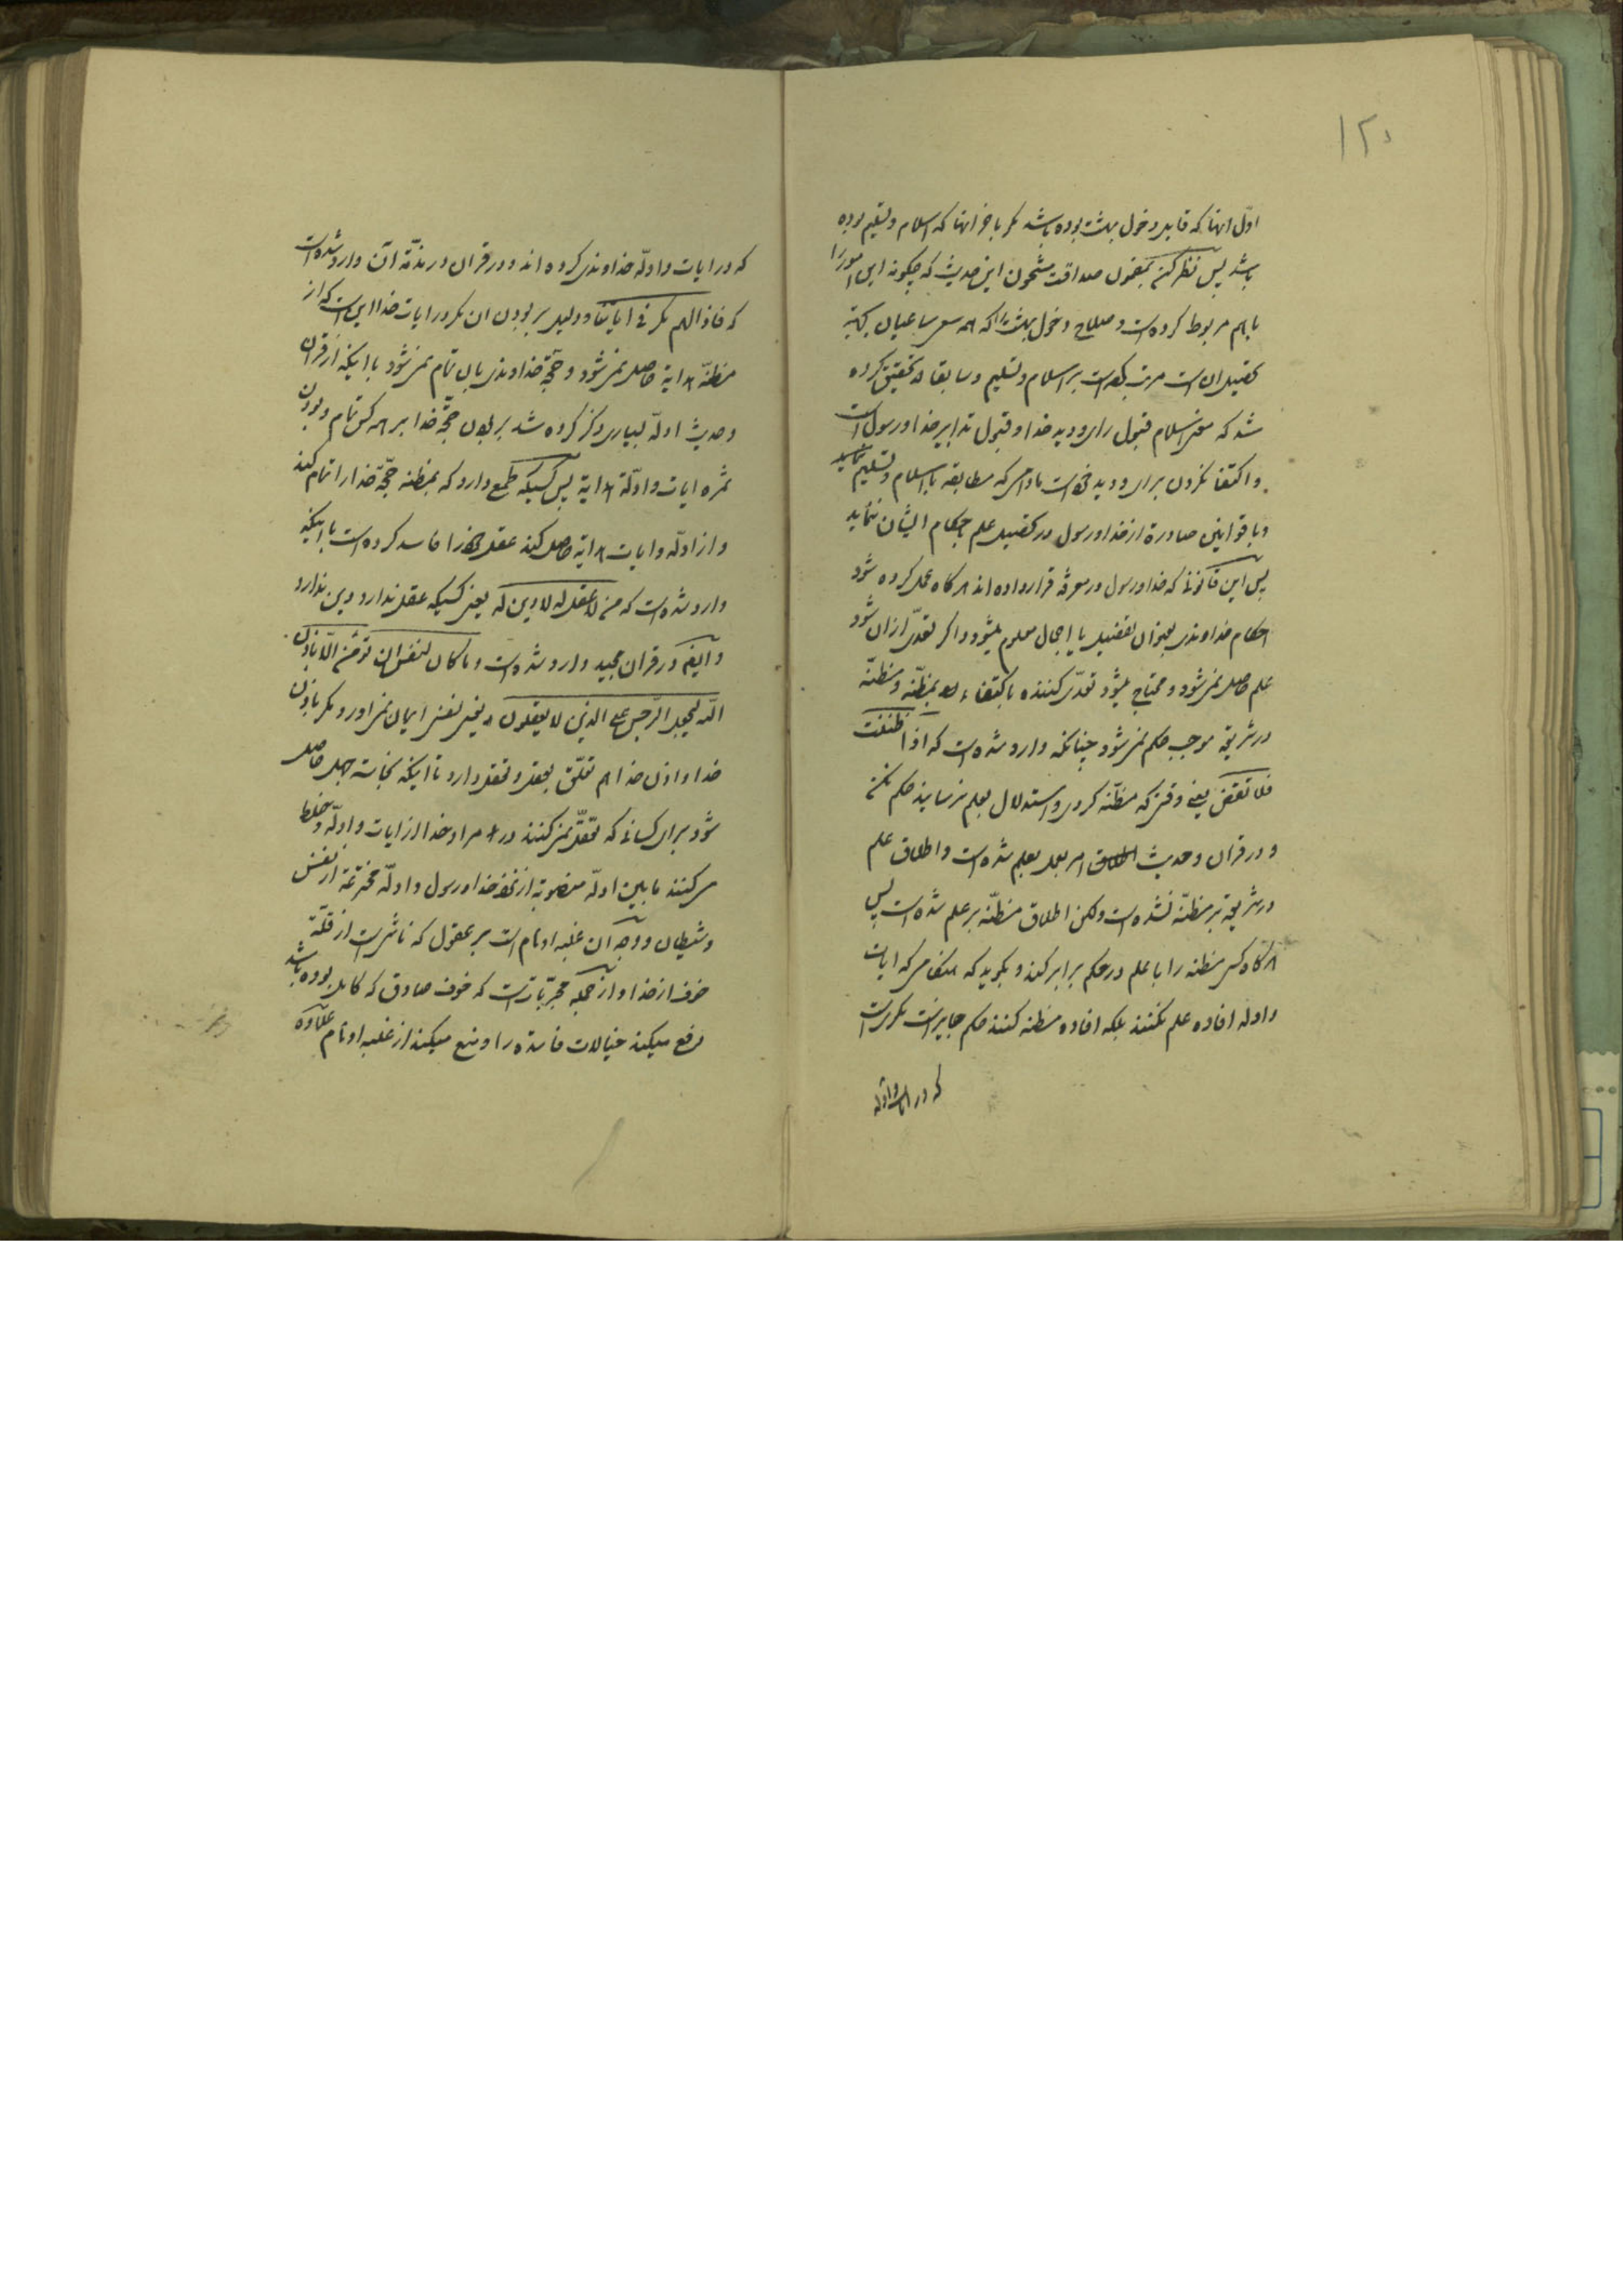 ۱۲۵
اول انها که قابل دخول بهشت بوده باشد مکر باخر انها که اسلام و تسلیم بوده
باشد پس نظر کن بمضمون صداقت مشحون این حدیث که چکونه این امور را
باهم مربوط کرده است و صلاح دخول بهشت را که همه سعی ساعیان بجهة
تحصیل ان است مرتب کرده است بر اسلام و تسلیم و سابقا تحقیق کرده
شد که معنی اسلام قبول رای و دید خدا و قبول تدابیر خدا و رسول است
و اکتفا نکردن برای و دید خود است مادامی که مطابقه با اسلام و تسلیم نماید
و با قوانین صادرة از خدا و رسول در تحصیل علم باحکام ایشان ننماید
پس این قانونی که خدا و رسول در معرفة قرار داده اند هرکاه عمل کرده شود
احکام خداوندی بعنوان تفصیل یا اجمال معلوم میشود و اکر تعدی ازان شود
علم حاصل نمی شود و محتاج میشود تعدی کننده باکتفاء بمظنه و مظنه
در شریعة موجب حکم نمی شود چنانکه وارد شده است که اذا ظننت
فلا تقض یعنی وقتی که مظنه کردی و استدلال بعلم نرسانید حکم مکن
و در قران و حدیث امر بعمل بعلم شده است و اطلاق علم
در شریعة بر مظنه نشده است ولکن اطلاق مظنه بر علم شده است پس
هرکاه کسی مظنه را با علم در حکم برابر کند و بکوید که هنکامی که ایات
و ادله افاده علم نکنند بلکه افاده مظنه کنند حکم جایز است مکری است
که در ایات و ادله
که در ایات و ادله خداوندی کرده اند و در قران در مذمة آن وارد شده است
که فاذا لهم مکر فی ایاتنا و دلیل بر بودن ان مکر در ایات خدا این است که از
مظنه هدایة حاصل نمی شود و حجة خداوندی بان تمام نمی شود با اینکه از قران
و حدیث ادله بسیاری ذکر کرده شد بر بودن حجة خدا بر همه کس تمام و بودن
ثمره ایات و ادلة هدایة پس کسیکه طمع دارد که بمظنه حجة خدا را تمام کند
و از ادله و ایات هدایة حاصل کند عقل خود را فاسد کرده است با اینکه
وارد شده است که من لا عقل له لا دین له یعنی کسیکه عقل ندارد دین ندارد
و ایضا در قران مجید وارد شده است و ما کان لنفس ان تؤمن الا باذن
الله و یجعل الرجس علی الذین لا یعقلون یعنی نفسی ایمان نمی اورد مکر باذن
خدا و اذن خدا هم تعلق بعقل و تعقل دارد تا اینکه نجاسة جهل حاصل
شود برای کسانی که تعقل نمی کنند در مراد خدا از ایات و ادله و خلط
می کنند ما بین ادله منصوبة از نحو خدا و رسول و ادله مخترعة از نفس
و شیطان و وجه ان غلبه اوهام است بر عقول که ناشی است از قلة
خوف از خدا و از جمله مجربات است که خوف صادق که کامل بوده باشد
رفع میکند خیالات فاسده را و منع میکند از غلبه اوهام علاوه